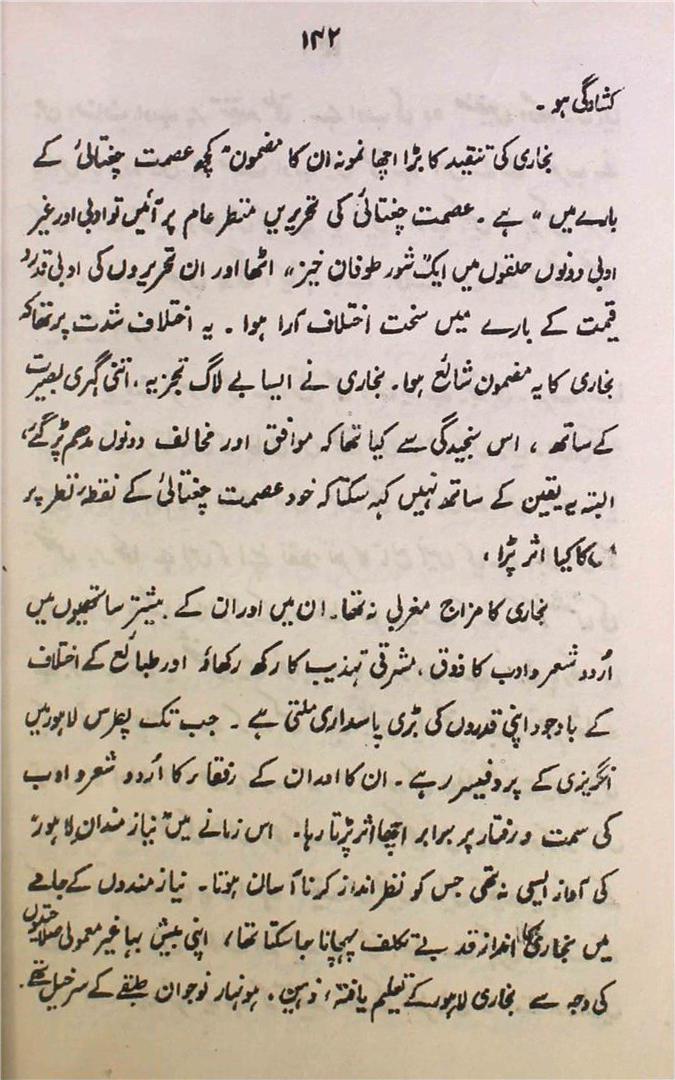 ۱۴۲
کشادگی ہو ۔
بخاری کی تنقید کا بڑا اچھا نمونہ ان کا مضمون " کچھ عصمت چغتائی کے
بارے میں " ہے ۔ عصمت چغتائی کی تحریریں منظر عام پر آئیں تو ادبی اور غیر
ادبی دونوں حلقوں میں ایک "شور طوفان خیز " اٹھا اور ان تحریروں کی ادبی قدر و
قیمت کے بارے میں سخت اختلاف آرا ہوا ۔ یہ اختلاف شدت پر تھا کہ
بخاری کا یہ مضمون شائع ہوا ۔ بخاری نے ایسا بے لاگ تجزیہ ، اتنی گہری بصیرت
کے ساتھ ، اس سنجیدگی سے کیا تھا کہ موافق اور مخالف دونوں مدھم پڑ گئے ،
البتہ یہ یقین کے ساتھ نہیں کہہ سکتا کہ خود عصمت چغتائی کے نقطۂ نظر پر
اس کا کیا اثر پڑا ،
بخاری کا مزاج مغربی نہ تھا ۔ ان میں اور ان کے بیشتر ساتھیوں میں
اُردو شعر و ادب کا ذوق ، مشرقی تہذیب کا رکھ رکھاؤ اور طبائع کے اختلاف
کے باوجود اپنی قدروں کی بڑی پاسداری ملتی ہے ۔ جب تک پطرس لاہور میں
انگریزی کے پروفیسر رہے ۔ ان کا اور ان کے رفقاء کا اُردو شعر و ادب
کی سمت و رفتار پر برابر اچھا اثر پڑتا رہا ۔ اس زمانے میں "نیاز مندانِ لاہور"
کی آواز ایسی نہ تھی جس کو نظر انداز کرنا آسان ہوتا ۔ نیاز مندوں کے جامے
میں بخاری کا انداز قد بے تکلف پہچانا جا سکتا تھا ، اپنی بیش بہا غیر معمولی صلاحیتوں
کی وجہ سے بخاری لاہور کے تعلیم یافتہ ، ذہین ، ہونہار نوجوان طبقے کے سرخیل تھے ۔